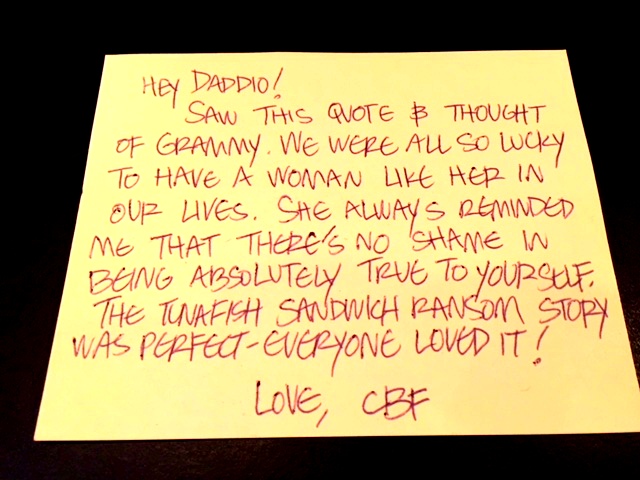 HEY DADDIO!
SAW THIS QUOTE & THOUGHT
OF GRAMMY. WE WERE ALL SO LUCKY
TO HAVE A WOMAN LIKE HER IN
OUR LIVES. SHE ALWAYS REMINDED
ME THAT THERE'S NO SHAME IN
BEING ABSOLUTELY TRUE TO YOURSELF.
THE TUNAFISH SANDWICH RANSOM STORY
WAS PERFECT-EVERYONE LOVED IT!
LOVE, CBF